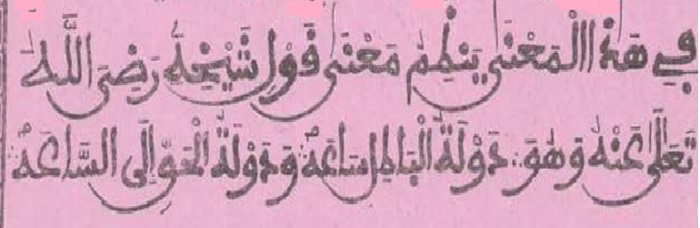 في هَذَا الْمَعْنَى يَنْظِمُ مَعْنَى قَوْلِ شَيْخِهِ رَضِيَ اللَّهُ
تَعَالَى عَنْهُ وَهُوَ: دَوْلَةُ الْبَاطِلِ سَاعَةٌ وَدَوْلَةُ الْحَقِّ إِلَى السَّاعَةِ: